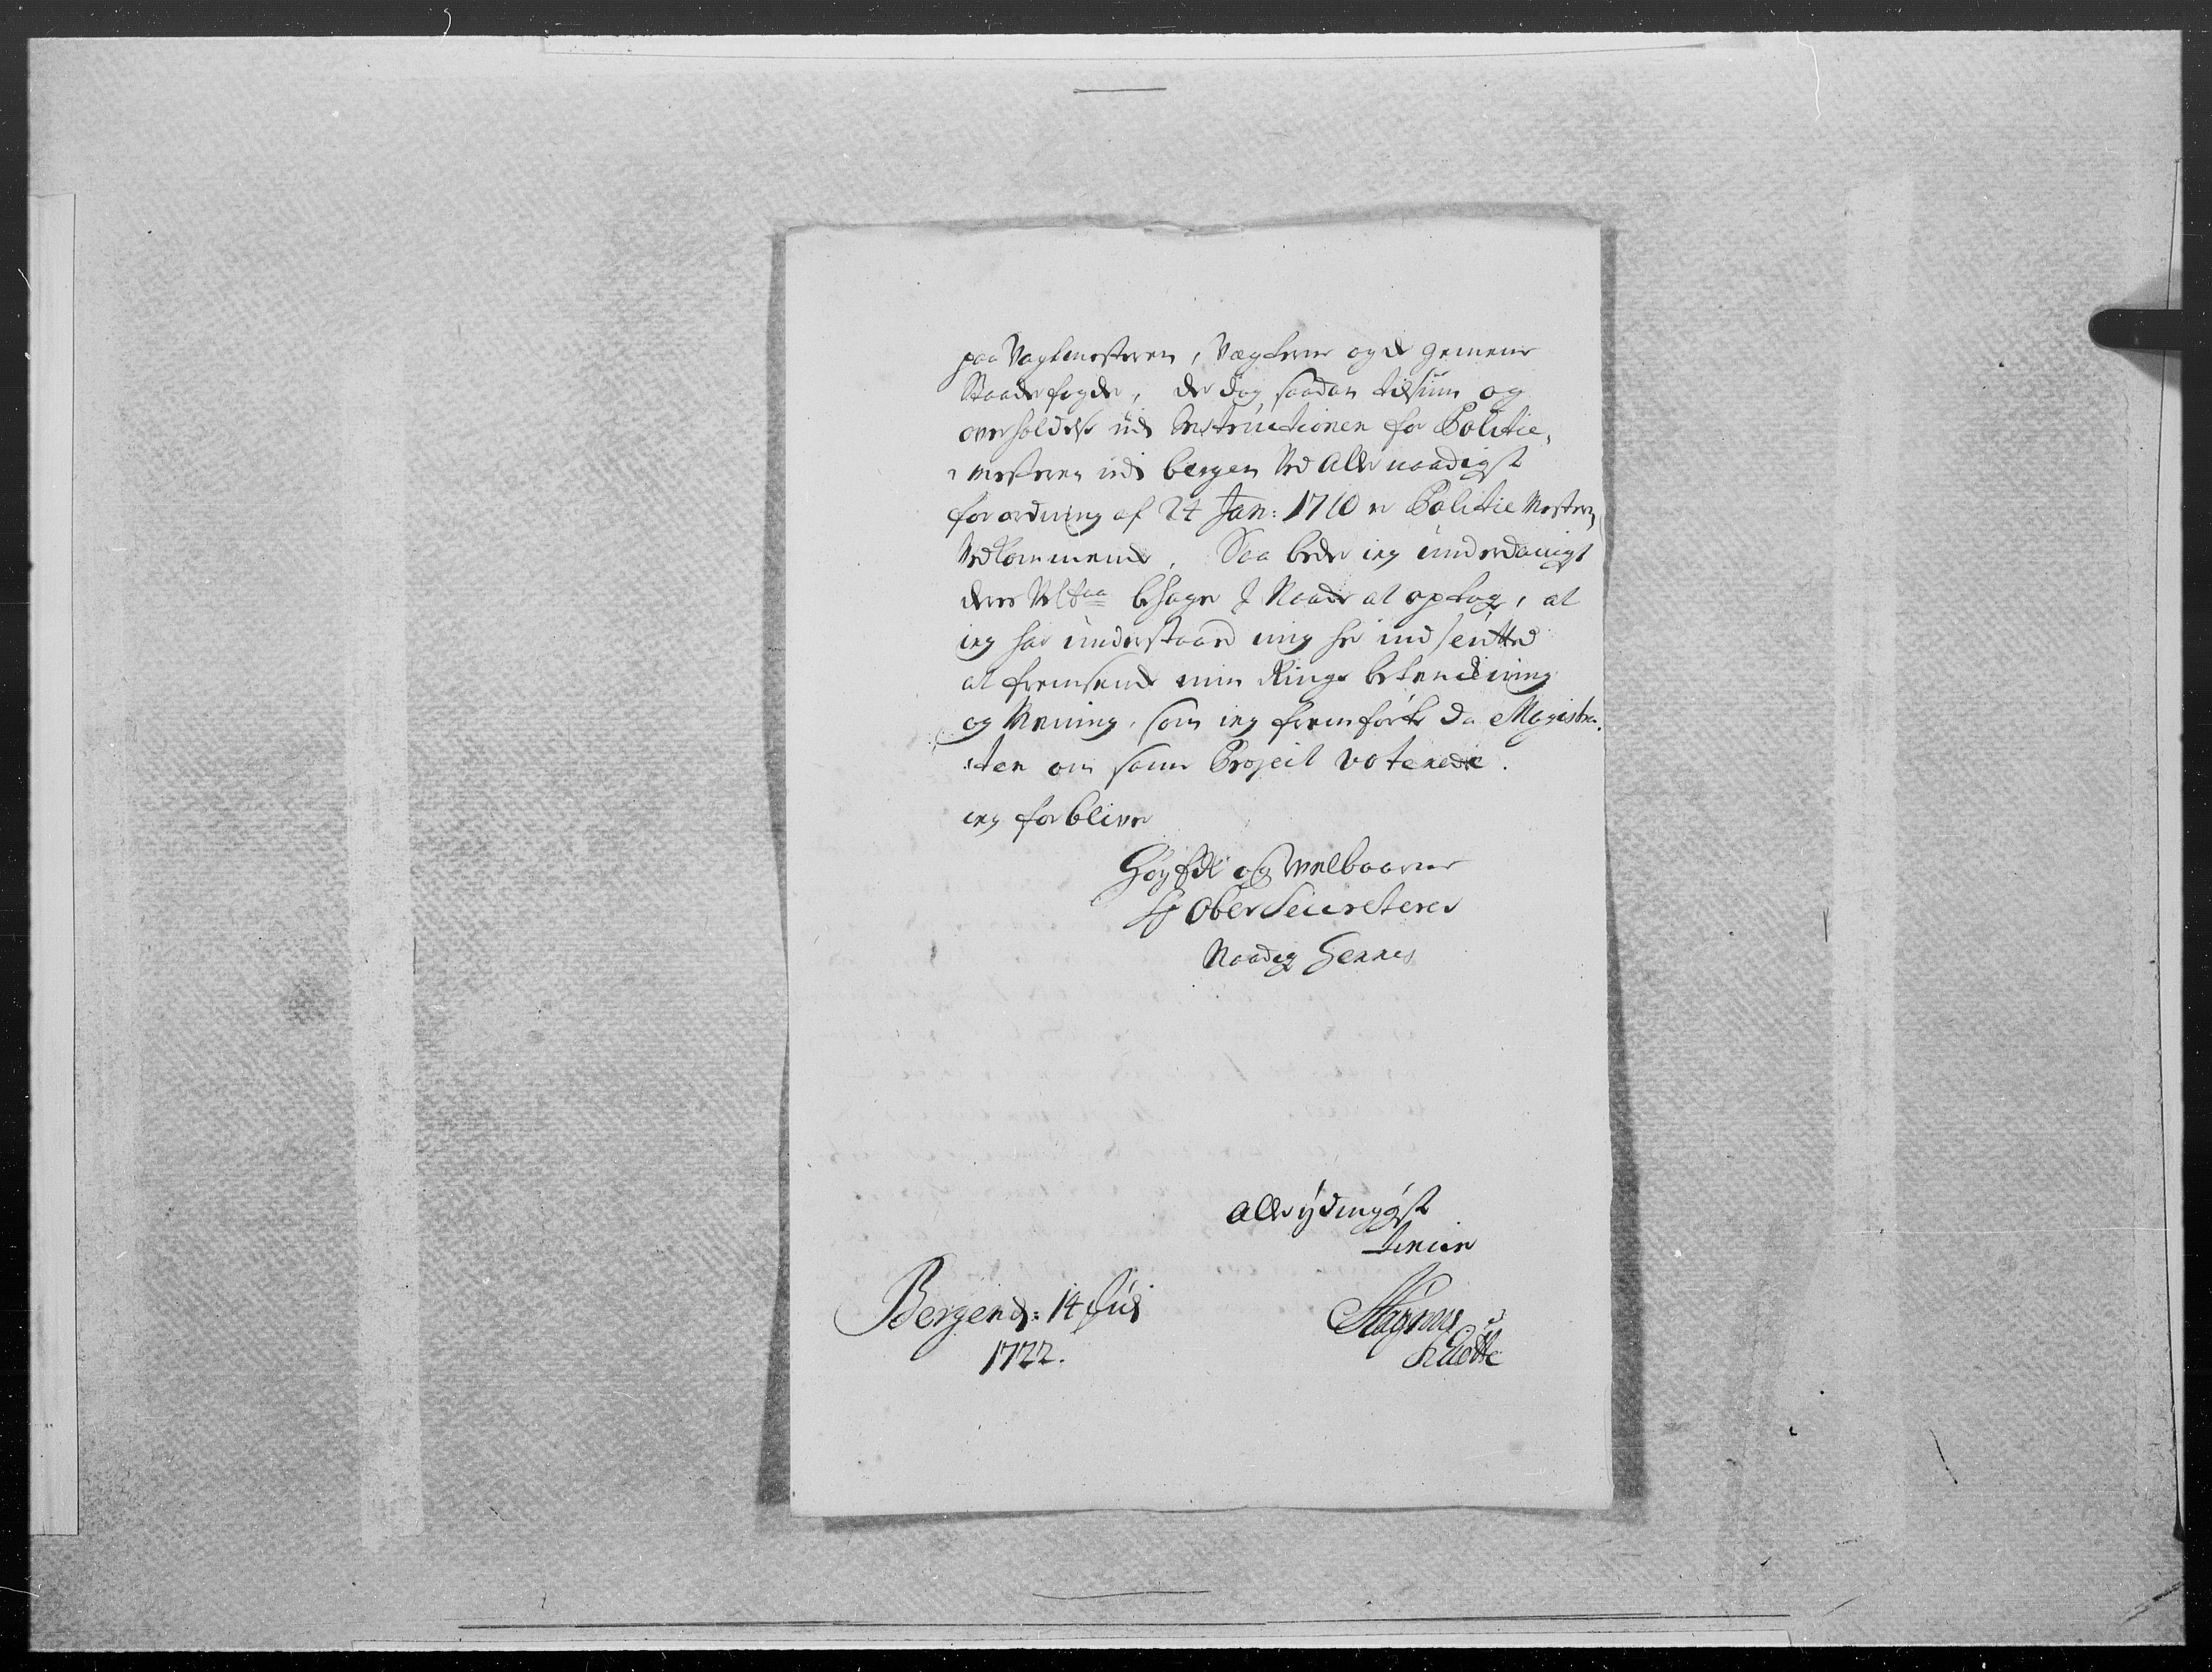 paa Vagtmesteren, Vægterne og de gemene
Stodderfogder, der dog saadan tilsiun og
overholdelse udj Instructionen for Politie,
mesteren udj bergen ved Allernaadigst
forordning af 24 Jan: 1710 er Politie Mesteren
Vedkommende. Saa beder ieg underdanigst
deres behager I Naade at optage, at
ieg har understaaed mig her indslutted
at fremsende min Ringe betenckning
og Mening, som ieg fremførte da Magistra,
ten om samme Project voterede.
ieg forbliver
Høyædle og Velbaarne
Hr Ober Secreterer
Naadig Herres
Allerydmygst
tiener
Bergen d: 14 Julj
1722.
Magnus